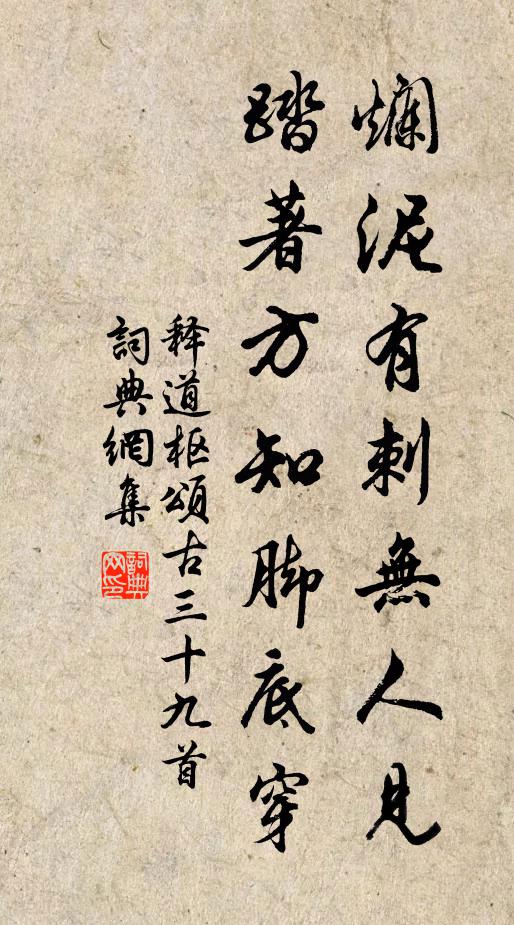 爛泥有刺無人見
踏著方知脚底穿
释道枢頌古三十九首
詞典網集
詞典网印